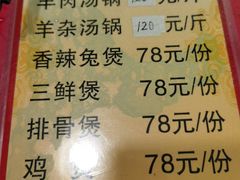 羊肉汤锅 元/斤
羊杂汤锅 120 元/斤
香辣兔煲 78元/份
三鲜煲 78元/份
排骨煲 78元/份
鸡 煲 78元/份